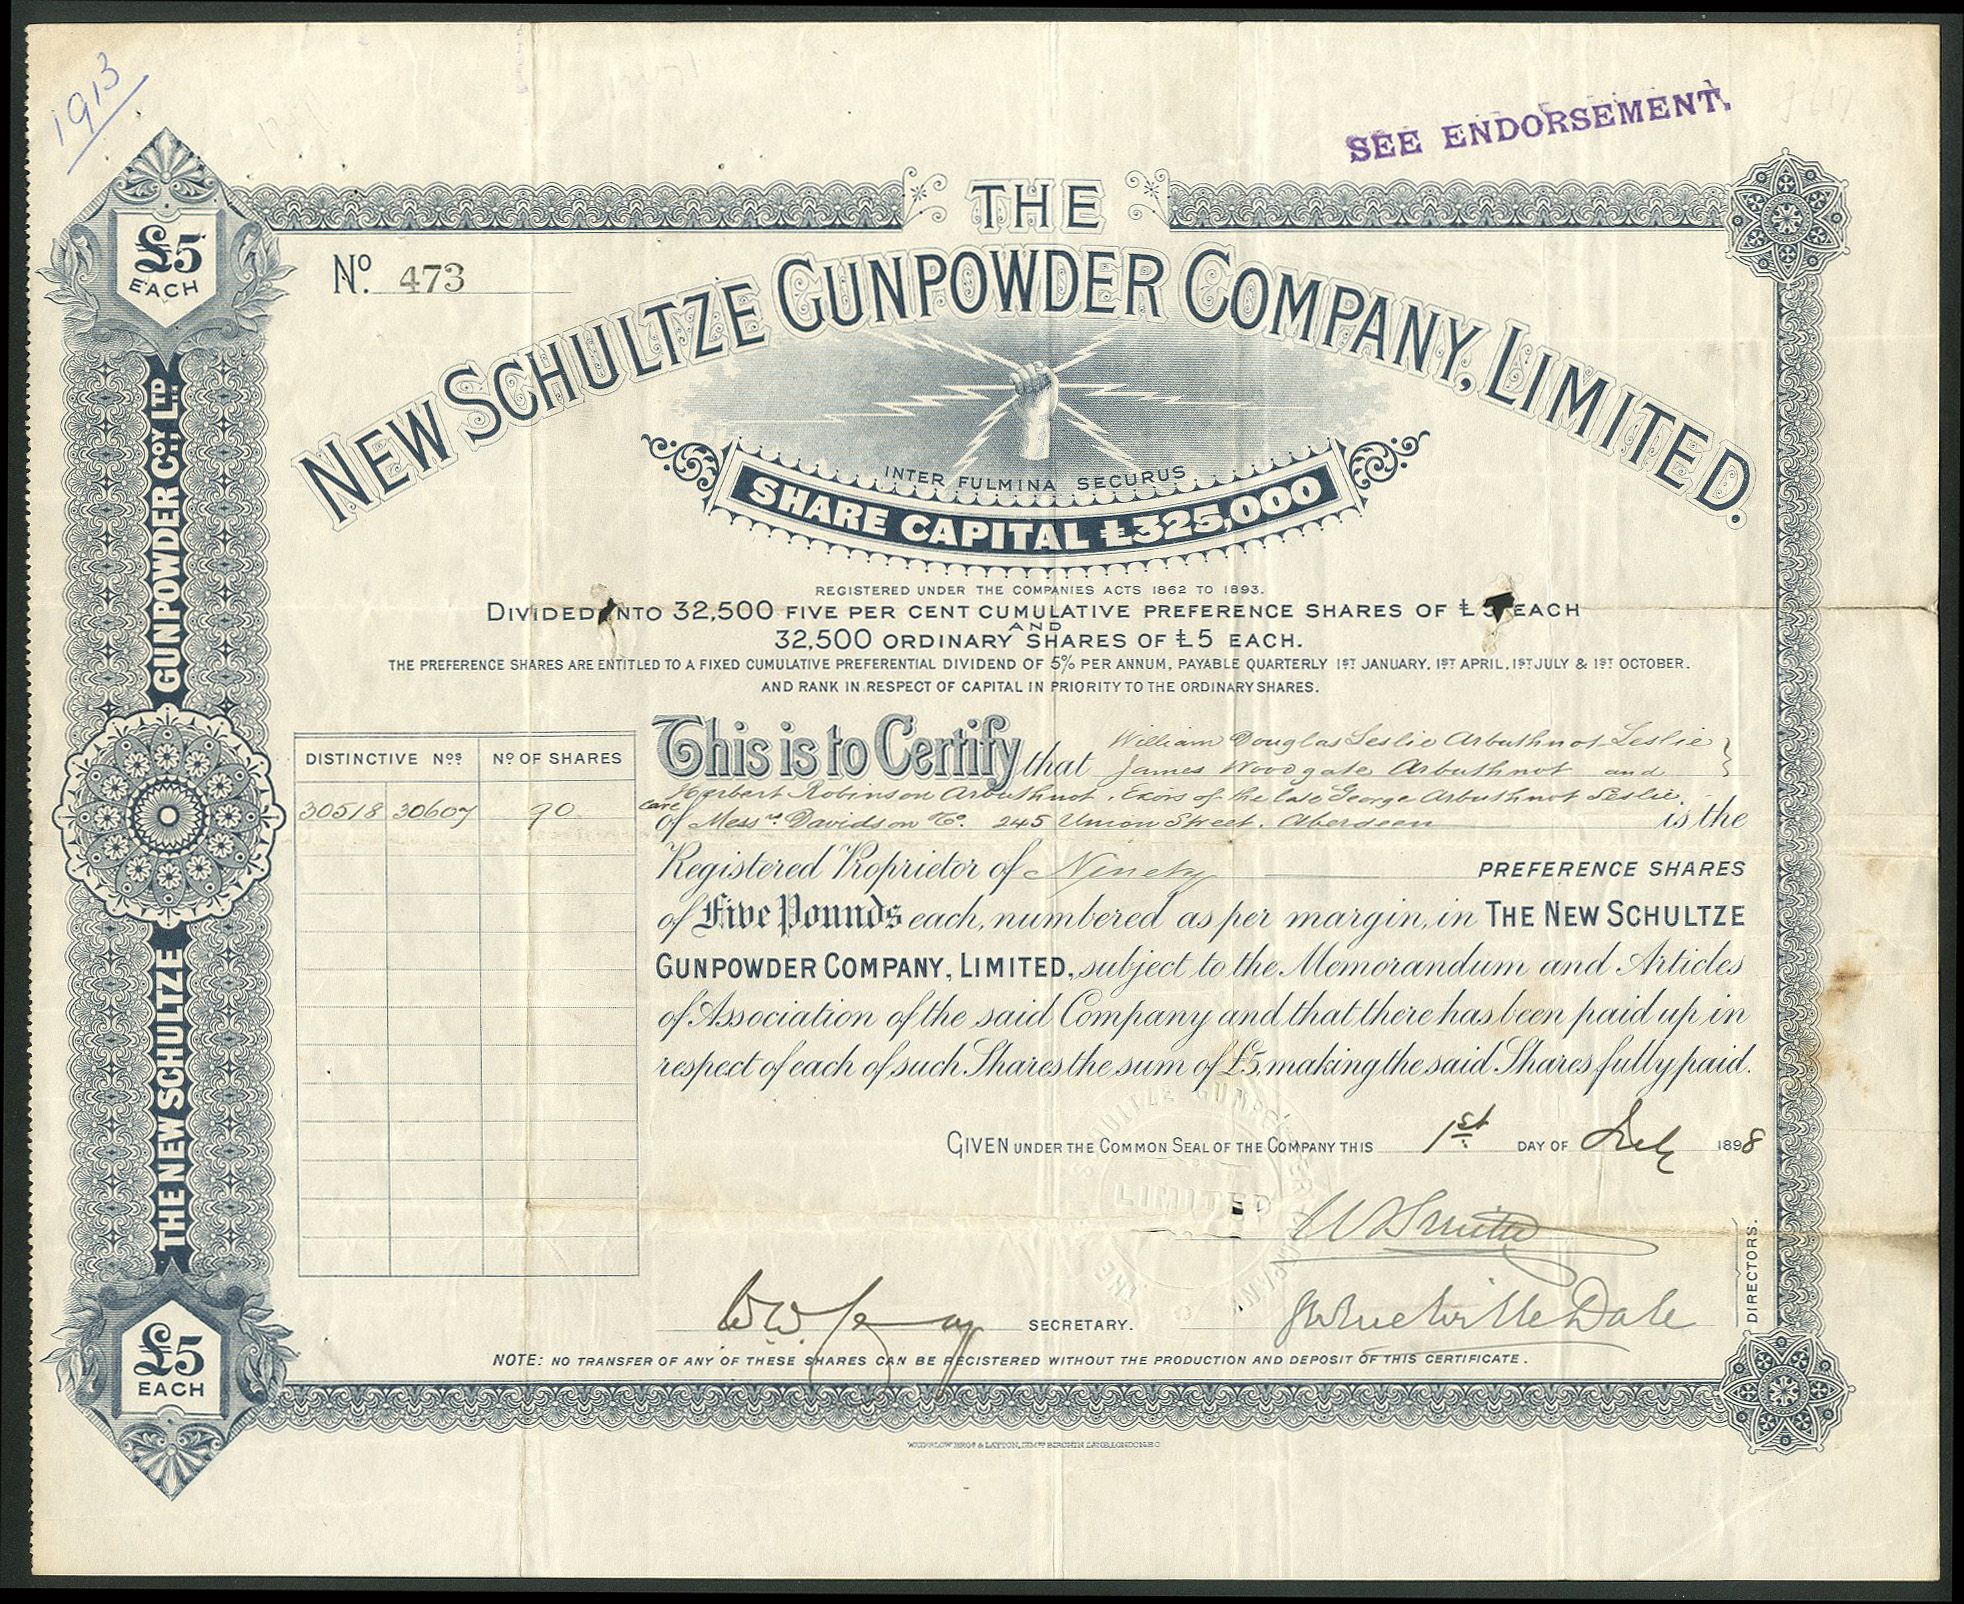 1913
SEE ENDORSEMENT.
THE
NEW SCHULTZE GUNPOWDER COMPANY, LIMITED.
£5
EACH
No. 473
INTER FULMINA SECURUS
SHARE CAPITAL £325,000
REGISTERED UNDER THE COMPANIES ACTS 1862 TO 1893.
DIVIDED INTO 32,500 FIVE PER CENT CUMULATIVE PREFERENCE SHARES OF £5 EACH
AND
32,500 ORDINARY SHARES OF £5 EACH.
THE PREFERENCE SHARES ARE ENTITLED TO A FIXED CUMULATIVE PREFERENTIAL DIVIDEND OF 5% PER ANNUM, PAYABLE QUARTERLY 1ST JANUARY, 1ST APRIL, 1ST JULY & 1ST OCTOBER.
AND RANK IN RESPECT OF CAPITAL IN PRIORITY TO THE ORDINARY SHARES.
THE NEW SCHULTZE GUNPOWDER COY, LTD
DISTINCTIVE NOS NO OF SHARES
30518 30607 90
William Douglas Leslie Arbuthnot Leslie
This is to Certify that James Woodgate Arbuthnot and
Herbert Robinson Arbuthnot, Exors of the late George Arbuthnot Leslie,
care of Messrs Davidson & Co. 245 Union Street, Aberdeen is the
Registered Proprietor of Ninety PREFERENCE SHARES
of Five Pounds each, numbered as per margin, in THE NEW SCHULTZE
GUNPOWDER COMPANY, LIMITED, subject to the Memorandum and Articles
of Association of the said Company and that there has been paid up in
respect of each of such Shares the sum of £5, making the said Shares fully paid.
GIVEN UNDER THE COMMON SEAL OF THE COMPANY THIS 1st DAY OF July 1898
THE SCHULTZE GUNPOWDER COMPANY
LIMITED
W Smith
DIRECTORS.
SECRETARY.
NOTE: NO TRANSFER OF ANY OF THESE SHARES CAN BE REGISTERED WITHOUT THE PRODUCTION AND DEPOSIT OF THIS CERTIFICATE.
£5
EACH
WATERLOW BROS & LAYTON, LIMTD BIRCHIN LANE, LONDON E C